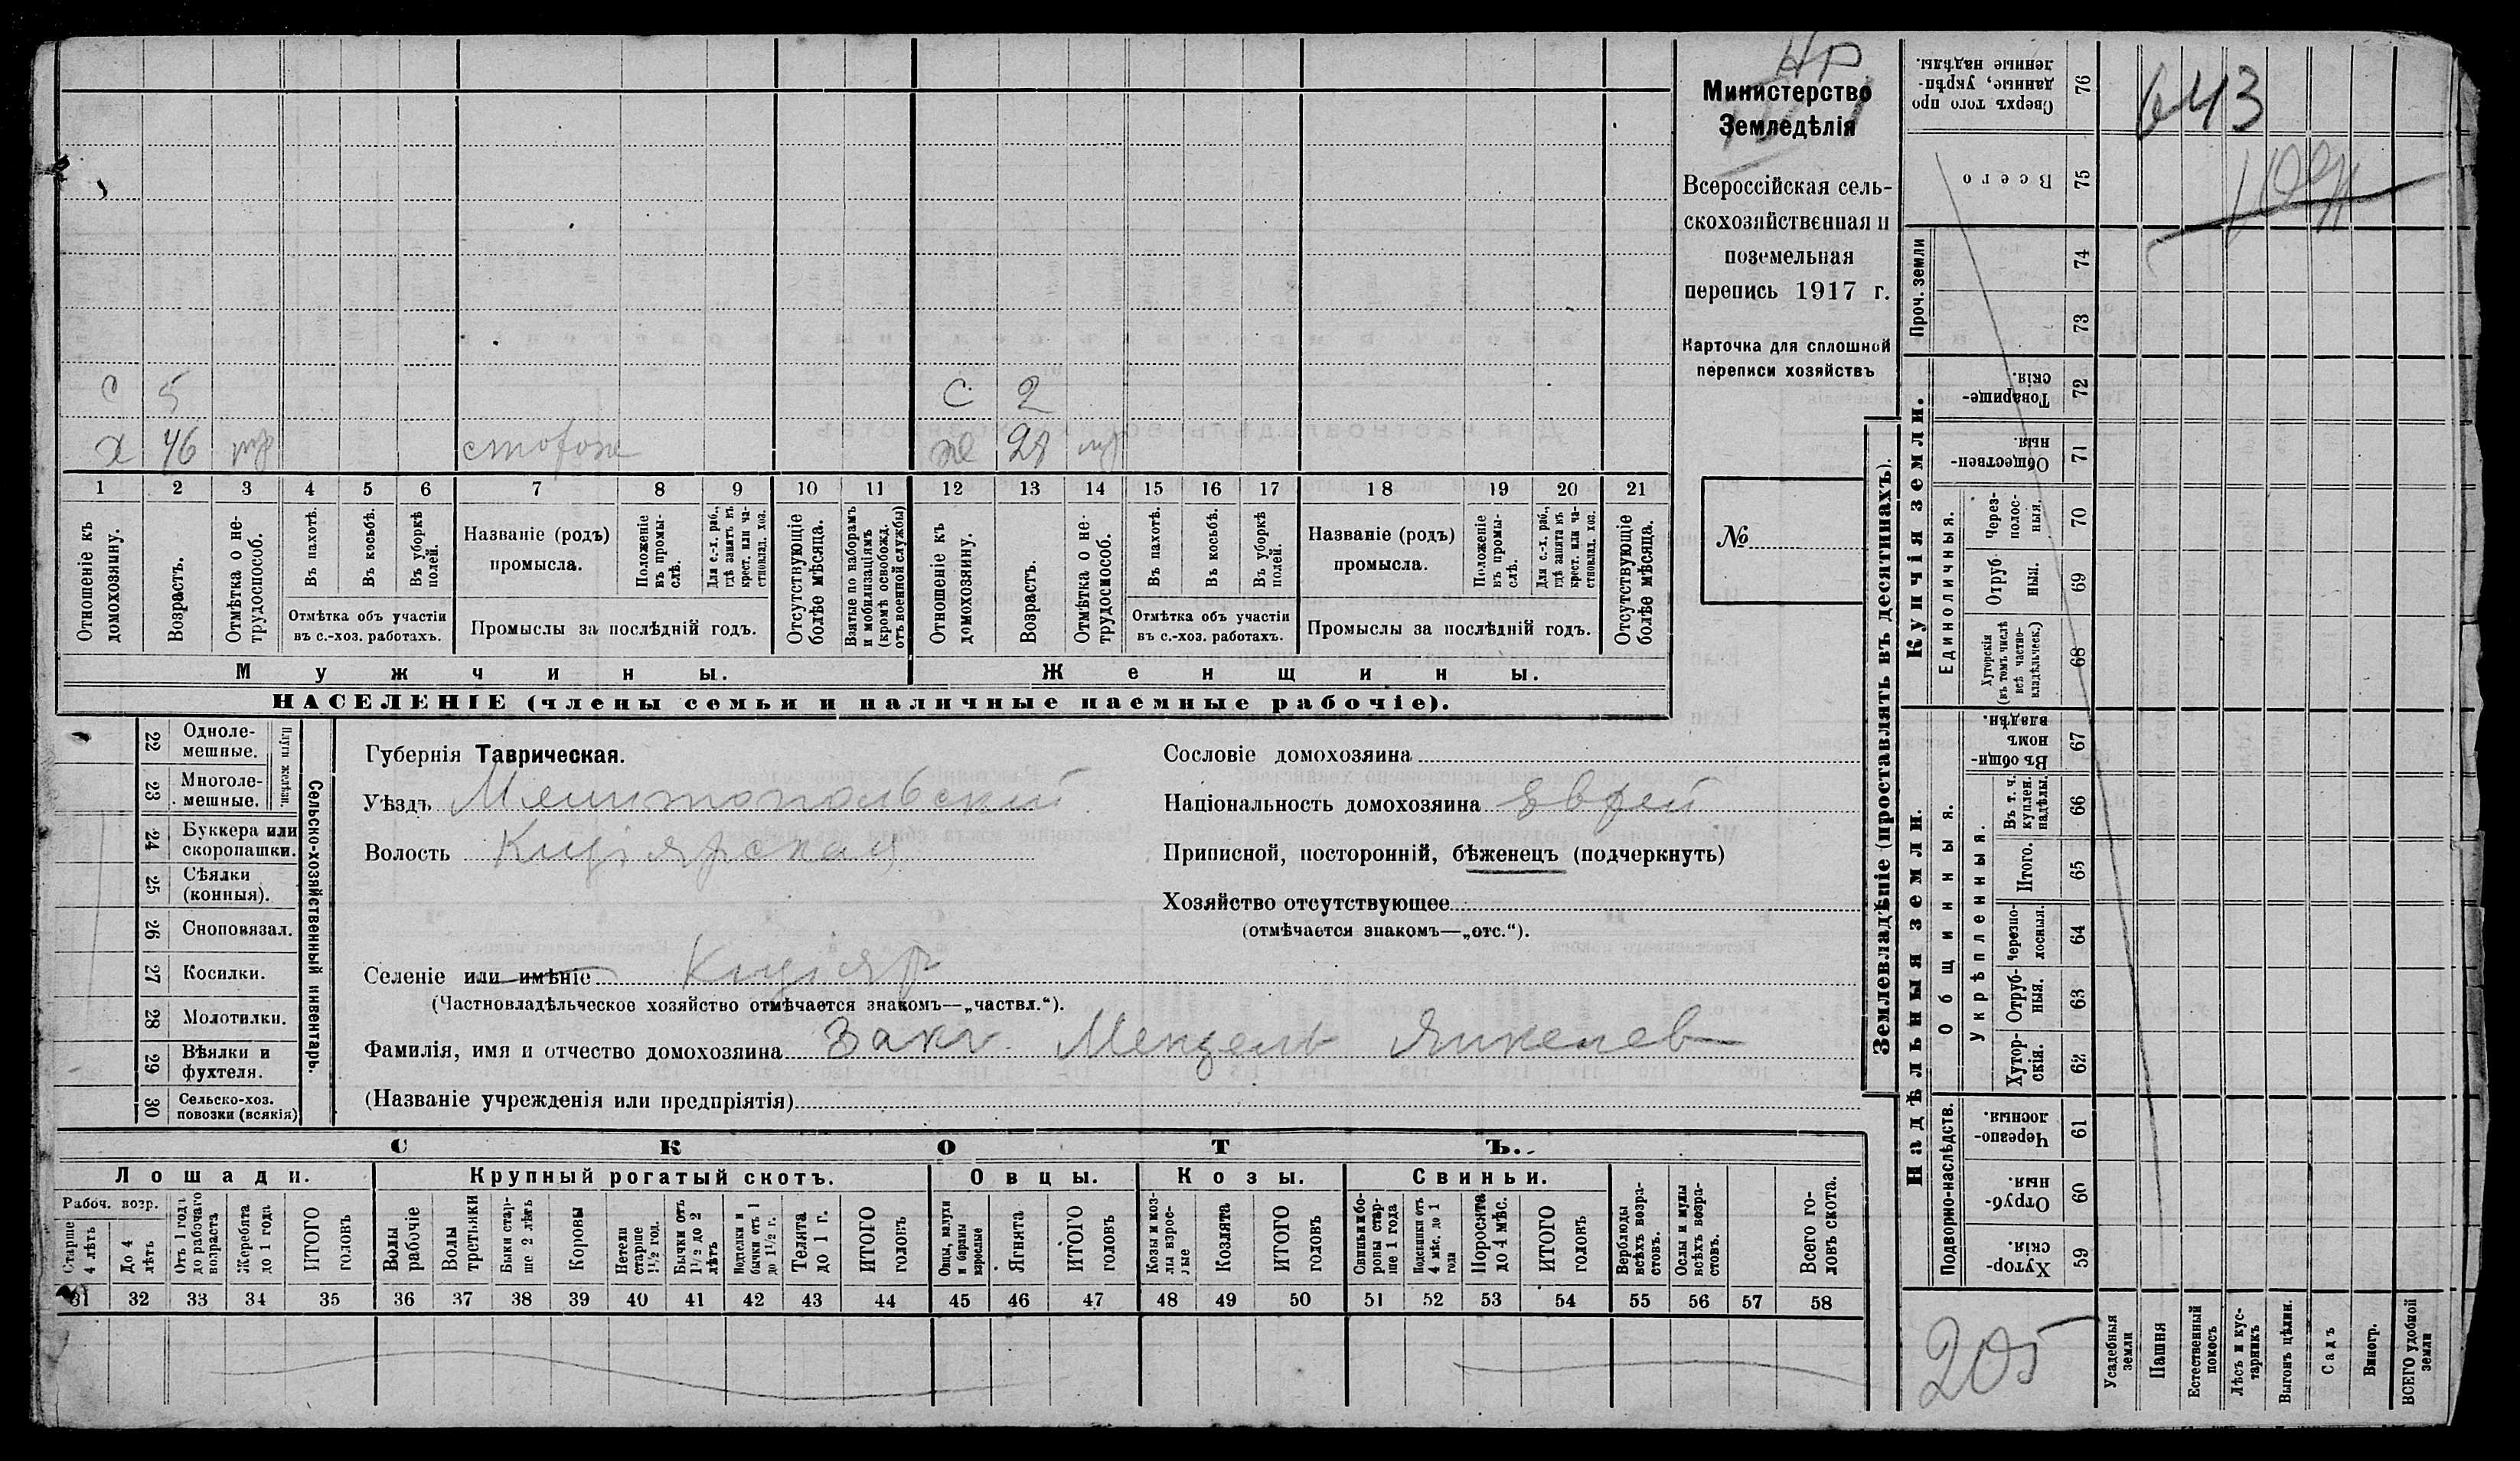 НР
Министерство
Земледѣлія
Всероссійская сель-
скохозяйственная и
поземельная
перепись 1917 г.
Карточка для сплошной
переписи хозяйствъ
№
643
с 5 с 2
х 46 тр сторож же 28 тр
1 2 3 4 5 6 7 8 9 10 11 12 13 14 15 16 17 18 19 20 21
Отношеніе къ домохозяину.
Возрастъ.
Отмѣтка о не-трудоспособ.
Въ пахотѣ.
Въ косьбѣ.
Въ уборкѣ полей.
Отмѣтка объ участіи
въ с.-хоз. работахъ.
Названіе (родъ)
промысла.
Положеніе въ промы-слѣ.
Для с.-х. раб., гдѣ занятъ въ крест. или ча-стновлад. хоз.
Промыслы за послѣдній годъ.
Отсутствующіе болѣе мѣсяца.
Взятые по наборамъ и мобилизаціямъ (кромѣ освобожд. отъ военной службы)
Отношеніе къ домохозяину.
Возрастъ.
Отмѣтка о не-трудоспособ.
Въ пахотѣ.
Въ косьбѣ.
Въ уборкѣ полей.
Отмѣтка объ участіи
въ с.-хоз. работахъ.
Названіе (родъ)
промысла.
Положеніе въ промы-слѣ.
Для с.-х. раб., гдѣ занята въ крест. или ча-стновлад. хоз.
Промыслы за послѣдній годъ.
Отсутствующіе болѣе мѣсяца.
Мужчины. Женщины.
НАСЕЛЕНІЕ (члены семьи и наличные наемные рабочіе).
Сельско-хозяйственный инвентарь.
Плуги желѣзн.
22 Одноле-мешные.
23 Многоле-мешные.
24 Буккера или скоропашки.
25 Сѣялки (конныя).
26 Сноповязал.
27 Косилки.
28 Молотилки.
29 Вѣялки и фухтеля.
30 Сельско-хоз. повозки (всякія)
Губернія Таврическая.
Уѣздъ Мелитопольский
Волость Кизіярская
Селеніе или имѣніе Кизіяр
(Частновладѣльческое хозяйство отмѣчается знакомъ—„частвл.“).
Фамилія, имя и отчество домохозяина Закс Мендель Янкелев
(Названіе учрежденія или предпріятія)
Сословіе домохозяина
Національность домохозяина Еврей
Приписной, посторонній, бѣженецъ (подчеркнуть)
Хозяйство отсутствующее
(отмѣчается знакомъ—„отс.“).
СКОТЪ.
Лошади. Крупный рогатый скотъ. Овцы. Козы. Свиньи.
Рабоч. возр.
Старше 4 лѣтъ
До 4 лѣтъ
Отъ 1 года до рабочаго возраста
Жеребята до 1 года
ИТОГО головъ
Волы рабочіе
Волы третьяки
Быки стар-ше 2 лѣтъ
Коровы
Нетели старше 1½ год.
Бычки отъ 1½ до 2 лѣтъ
Подтелки и бычки отъ 1 до 1½ г.
Телята до 1 г.
ИТОГО головъ
Овцы, валухи и бараны взрослые
Ягнята
ИТОГО головъ
Козы и коз-лы взрос-лые
Козлята
ИТОГО головъ
Свиньи и бо-ровы стар-ше 1 года
Подсвинки отъ 4 мѣс. до 1 года
Поросята до 4 мѣс.
ИТОГО головъ
Верблюды всѣхъ возра-стовъ.
Ослы и мулы всѣхъ возра-стовъ.
Всего го-ловъ скота.
31 32 33 34 35 36 37 38 39 40 41 42 43 44 45 46 47 48 49 50 51 52 53 54 55 56 57 58
Землевладѣніе (проставлять въ десятинахъ).
Купчія земли.
Надѣльныя земли.
Сверхъ того про данные, укрѣп-ленные надѣлы. 76
Всего 75
Проч. земли
74
73
Товарище-скія. 72
Обществен-ныя. 71
Единоличныя.
Через-полос-ныя. 70
Отруб-ныя. 69
Хуторскія (въ томъ числѣ всѣ частно-владѣльческ.) 68
Общинныя.
Въ общи-номъ владѣн. 67
Укрѣпленныя.
Въ т. ч. куплен. надѣлы. 66
Итого. 65
Черезпо-лосныя. 64
Отруб-ныя. 63
Хутор-скія. 62
Подворно-наслѣдств.
Черезпо-лосныя. 61
Отруб-ныя. 60
Хутор-скія. 59
205
Усадебныя земли
Пашня
Естественный покосъ
Лѣсъ и кус-тарникъ
Выгонъ цѣлин.
Садъ
Виногр.
ВСЕГО удобной земли